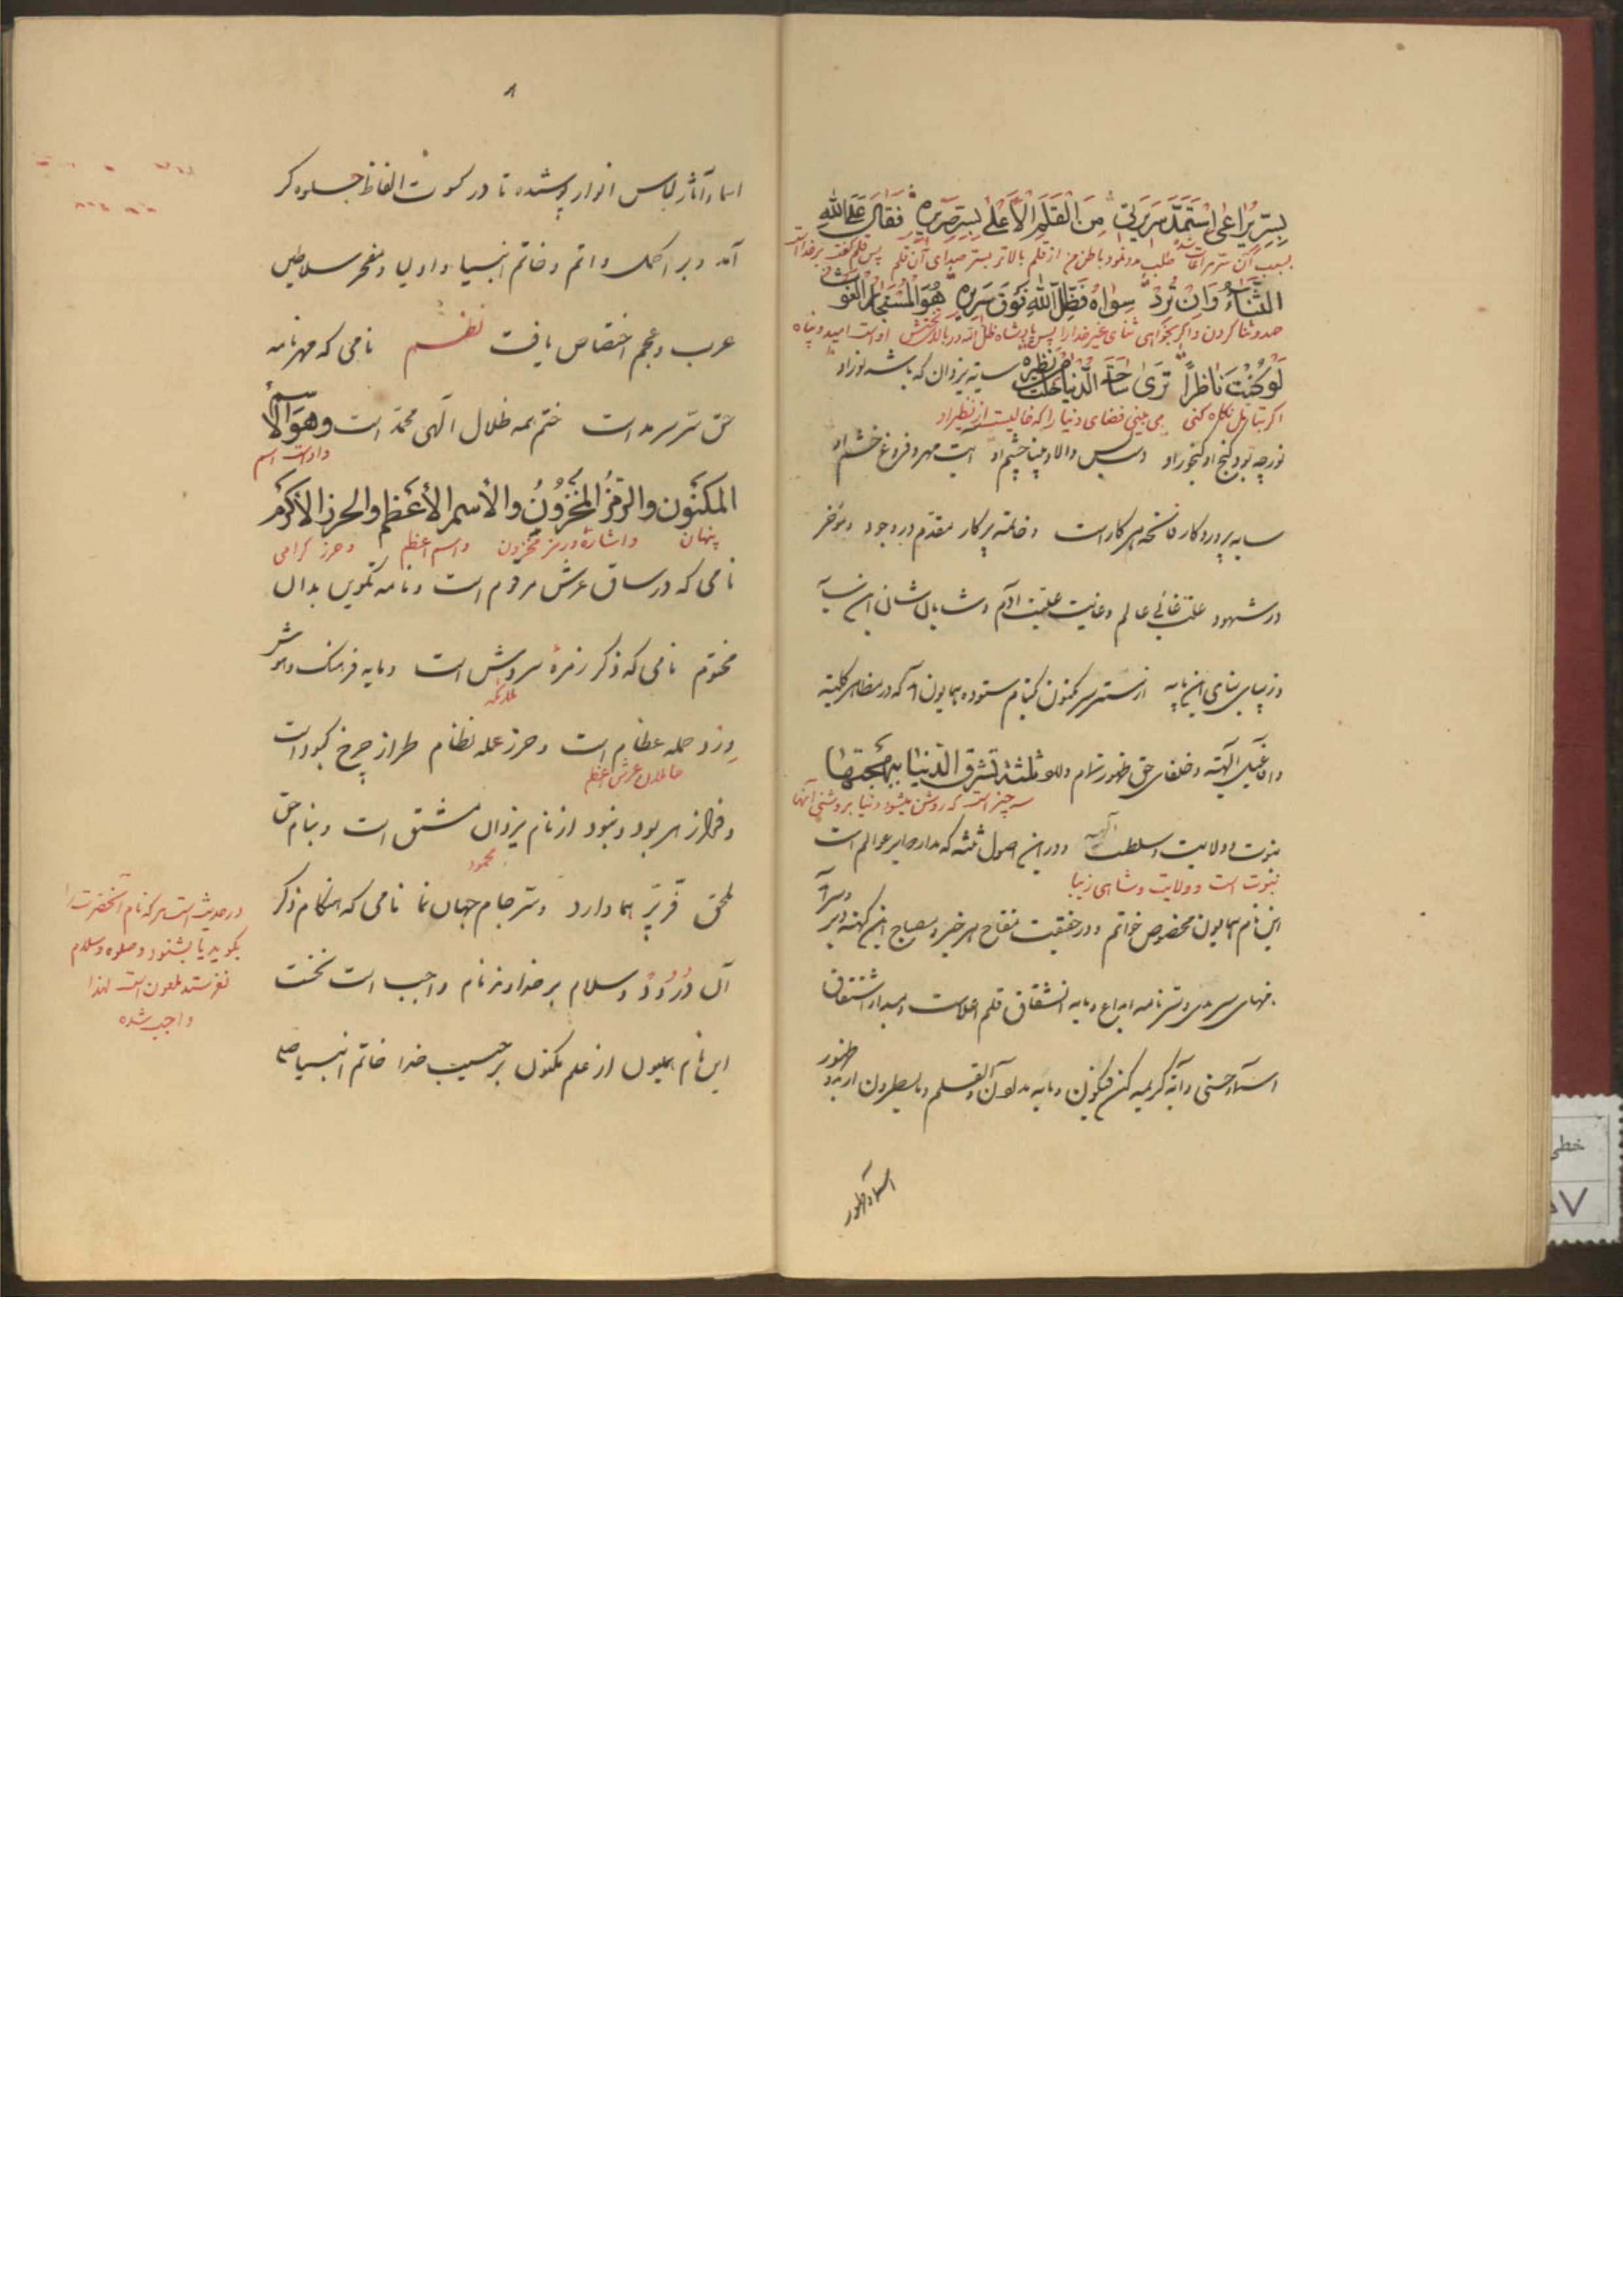 بسرّ یراعی استمدّ سریرتی من القلم الأعلی بسرّ صریره فقال علی الله
بسبب آن سرّ طلب مدد نمود باطن من از قلم بالاتر بسرّ صدای آن قلم پس قلم گفت بر خداست
الثناء وان ترد سواه فظلّ الله فوق سریره هو المستجار الغوث
حمد و ثنا کردن و اگر بخواهی ثنای غیر خدا را پس پادشاه ظل الله در بالای تختش اوست امید و پناه
لو کنت ناظراً تری ساحة الدنیا خلت من نظیره سایه یزدان که باشد نور او
اگر بتامل نگاه کنی می بینی فضای دنیا را که خالیست از نظیر او
نور چه بود گنج او گنجور او و بس والا و بینا چشم او آیت مهر و فروغ خشم او
سایه پروردگار فاتحه هر کار است و خاتمه پرکار مقدم در وجود و مؤخر
در شهود علت غائی عالم و غایت آدم و شایان شان این سایه
و زیبای بنای این پایه از ستر سر مکنون نام ستوده همایون آمد که در مظاهر کلیه
الهیه و خلفای حق ظهور تام ثلثة تشرق الدنیا ببهجتها
سه چیز است که روشن میشود دنیا بروشنی آنها
نبوت و ولایت و سلطنت الهیه و در این اصول ثلثه که مدار عوالم است
نبوت است و ولایت و شاهی زیبا
این نام همایون مخصوص خواتم و در حقیقت مفتاح هر خیر و مصباح این کهنه دیر
و سر نامه ابداع و مایه انشقاق قلم اعلاست و مبدأ اشتقاق
اسماء حسنی و آیه کریمه کن فیکون و مایه مدلول ن والقلم و ما یسطرون از بدو ظهور
اسماء و آثار لباس انوار پوشیده تا در کسوت الفاظ جلوه گر
آمد و بر اکمل و اتم و خاتم انبیا و اولیا و مفخر سلاطین
عرب و عجم اختصاص یافت نظم نامی که مهر نامه
حق سرّ سرمد است ختم همه ظلال الهی محمّد است وهو الاسم
و اوست اسم
المکنون والرمز المخزون والأسم الأعظم والحرز الأکرم
پنهان و اشاره و رمز مخزون و اسم اعظم و حرز گرامی
نامی که در ساق عرش مرقوم است و نامه تکوین بدان
مختوم نامی که ذکر زمرهٔ سروش است و مایه فرهنگ و هوش
ملائکه
ورد حمله عظام است و حرز عله نظام طراز چرخ کبود است
حاملان عرش اعظم
و فراز هر بود و نبود از نام یزدان مشتق است و بنام حق
محمود
ملحق فرّ پرّ هما دارد و سرّ جام جهان نما نامی که هنگام ذکر
آن درود و سلام بر خداوند نام واجب است نخست
این نام همایون از علم مکنون بر حبیب خدا خاتم انبیا صلی
در حدیث است هر که نام آنحضرت را
بگوید یا بشنود و صلوة و سلام
نفرستد ملعون است لهذا
واجب شده
خطی